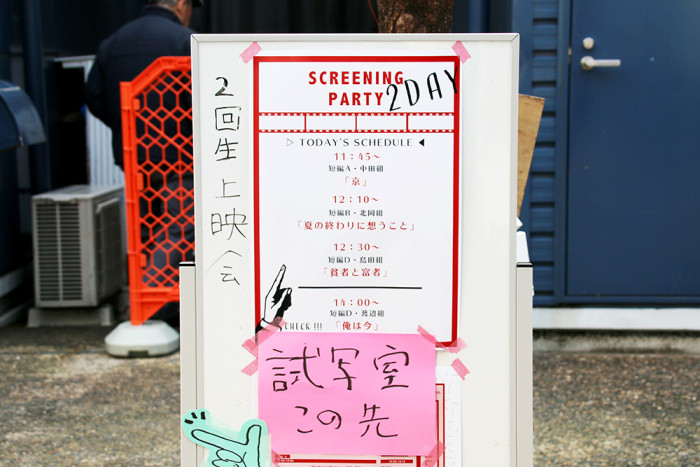 2回生上映会
SCREENING
PARTY
2DAY
▷ TODAY'S SCHEDULE ◀
11：45～
短編A・中田組
「京」
12：10～
短編B・北岡組
「夏の終わりに想うこと」
12：30～
短編D・島田組
「貧者と富者」
14：00～
短編D・渡辺組
「俺は今」
CHECK !!!
試写室
この先